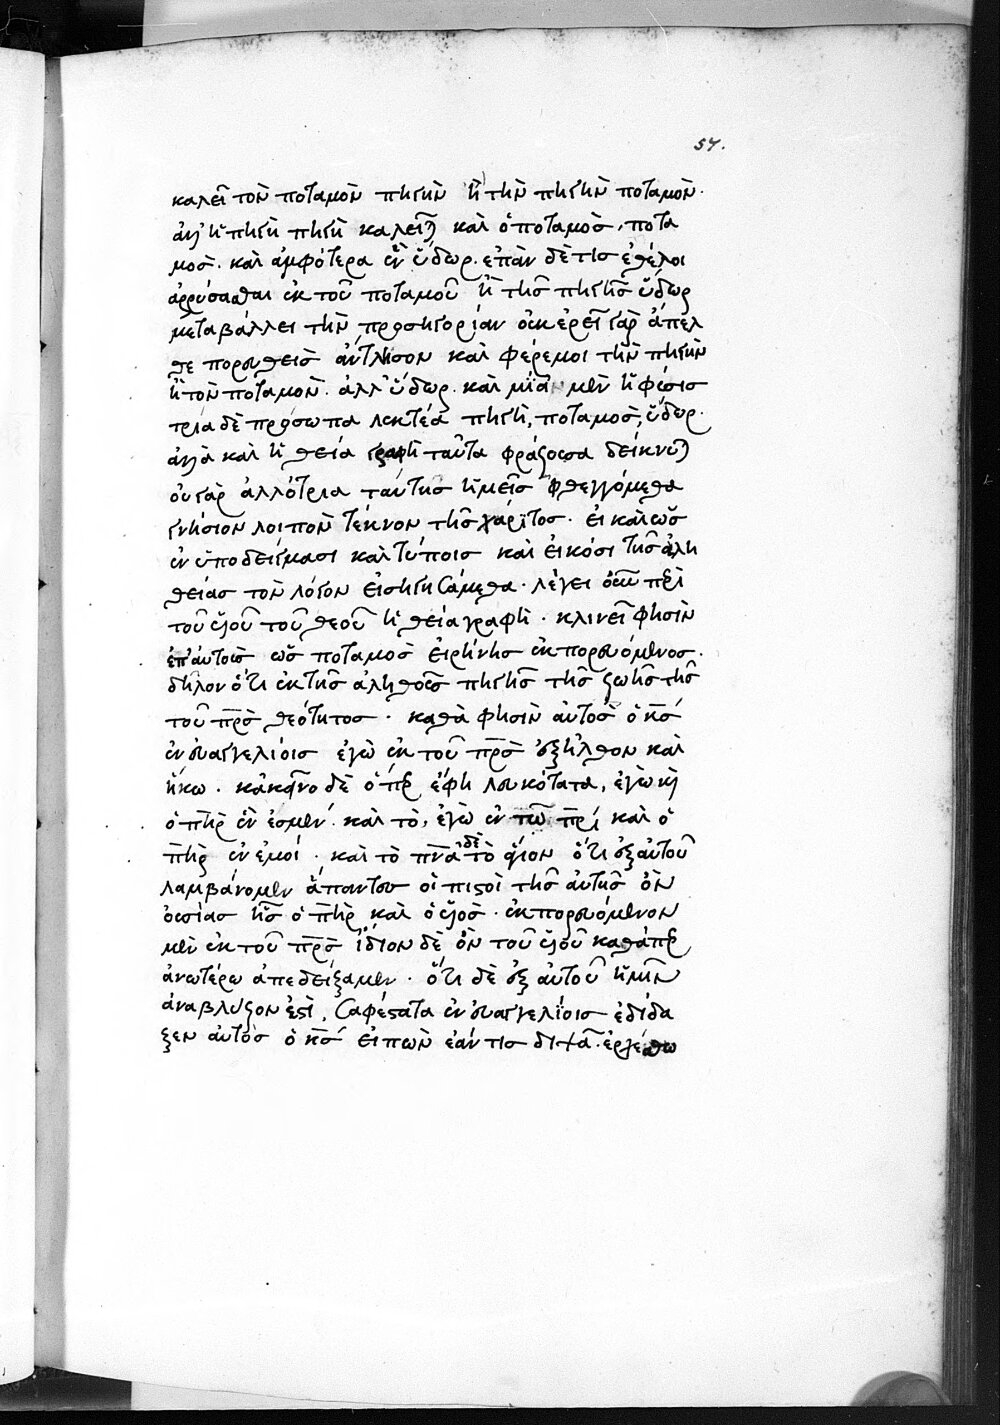 57.
καλεῖ τὸν ποταμὸν πηγὴν ἢ τὴν πηγὴν ποταμὸν.
ἀλλ' ἡ πηγὴ πηγὴ καλεῖται καὶ ὁ ποταμὸς, ποτα
μος. καὶ ἀμφότερα ἓν ὕδωρ. ἐπὰν δέ τις ἐθέλοι
ἀρρύσασθαι ἐκ τοῦ ποταμοῦ ἢ τῆς πηγῆς ὕδωρ
μεταβάλλει τὴν προσηγορίαν οὐκ ἐρεῖ γὰρ ἄπελ
θε πορευθεὶς ἄντλησον καὶ φέρε μοι τὴν πηγὴν
ἢ τὸν ποταμὸν. ἀλλ' ὕδωρ. καὶ μία μὲν ἡ φύσις
τρία δὲ πρόσωπα λεκτέα πηγὴ, ποταμος, ὕδωρ.
ἀλλὰ καὶ ἡ θεία γραφὴ ταῦτα φράζουσα δείκνυται
οὐ γὰρ ἀλλότρια ταύτης ἡμεῖς φθεγγόμεθα
γνήσιον λοιπὸν τέκνον τῆς χάριτος. εἰ καὶ ὡς
ἐν ὑποδείγμασι καὶ τύποις καὶ εἰκόσι τῆς ἀλη
θείας τὸν λόγον εἰσηγησάμεθα. λέγει οὖν περὶ
τοῦ υἱοῦ τοῦ θεοῦ ἡ θεία γραφὴ. κλινεῖ φησὶν
ἐπ' αὐτοὺς ὡς ποταμὸς εἰρήνης ἐκπορευόμενος.
δῆλον ὅτι ἐκ τῆς ἀληθοῦς πηγῆς τῆς ζωῆς τῆς
τοῦ πρς θεότητος. καθὰ φησὶν αὐτὸς ὁ κς
ἐν εὐαγγελίοις ἐγὼ ἐκ τοῦ πρς ἐξῆλθον καὶ
ἥκω. κἀκεῖνο δὲ ὅπερ ἔφη λευκότατα, ἐγὼ καὶ
ὁ πηρ ἕν ἐσμεν. καὶ τὸ, ἐγὼ ἐν τῷ πρι καὶ ὁ
πηρ ἐν ἐμοί. καὶ τὸ πνα δὲ τὸ ἅγιον ὅτι ἐξ αὐτοῦ
λαμβάνομεν ἅπαντες οἱ πιστοὶ τῆς αὐτῆς ὂν
οὐσίας ἧς ὁ πηρ καὶ ὁ υἱὸς. ἐκπορευόμενον
μὲν ἐκ τοῦ πρς ἴδιον δὲ ὂν τοῦ υἱοῦ καθάπερ
ἀνωτέρω ἀπεδείξαμεν. ὅτι δὲ ἐξ αὐτοῦ ἡμῖν
ἀναβλύζον ἐστὶ, σαφέστατα ἐν εὐαγγελίοις ἐδίδα
ξεν αὐτὸς ὁ κς εἰπὼν ἐάν τις διψᾶ. ἐρχέσθω